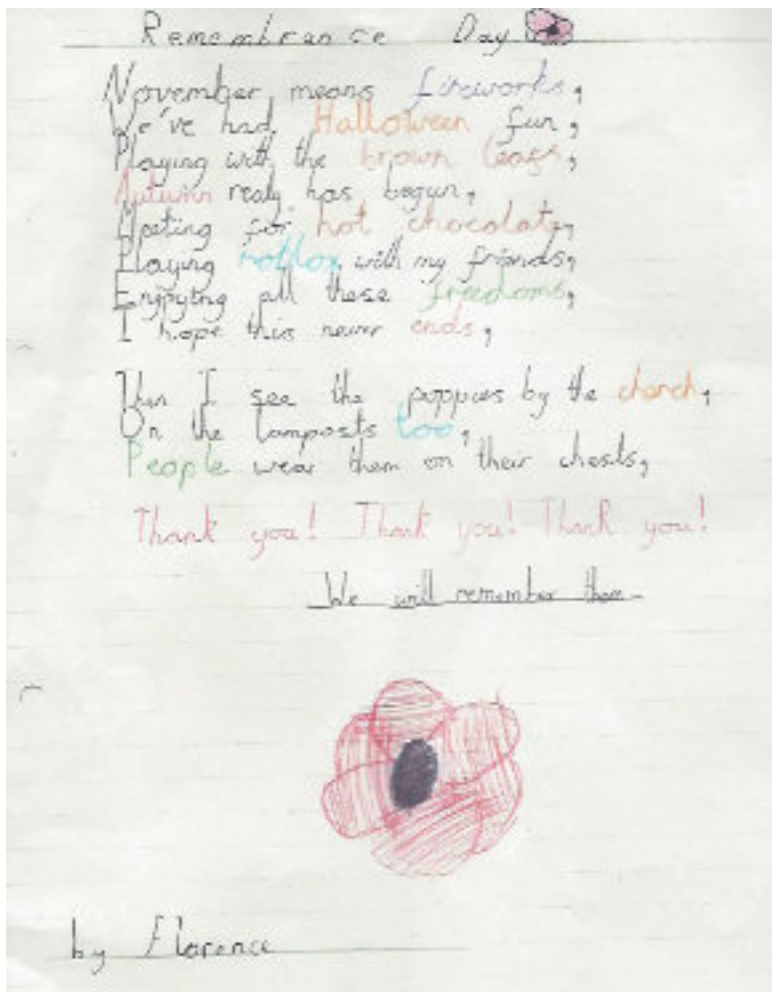 Remembrance Day
November means fireworks,
We've had Halloween fun,
Playing with the brown leafs,
Autumn realy has begun,
Meeting for hot chocolate,
Playing roblox with my friends,
Enjoying all these freedoms,
I hope this never ends,
Then I see the poppies by the church,
On the lamposts too,
People wear them on their chests,
Thank you! Thank you! Thank you!
We will remember them
by Florence